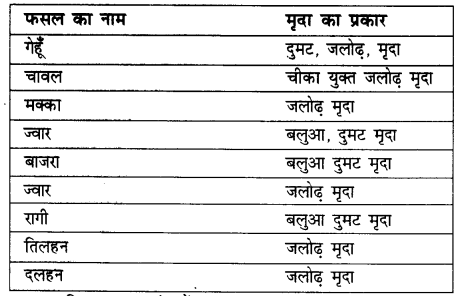 फसल का नाम मृदा का प्रकार
गेहूँ दुमट, जलोढ़, मृदा
चावल चीका युक्त जलोढ़ मृदा
मक्का जलोढ़ मृदा
ज्वार बलुआ, दुमट मृदा
बाजरा बलुआ दुमट मृदा
ज्वार जलोढ़ मृदा
रागी बलुआ दुमट मृदा
तिलहन जलोढ़ मृदा
दलहन जलोढ़ मृदा